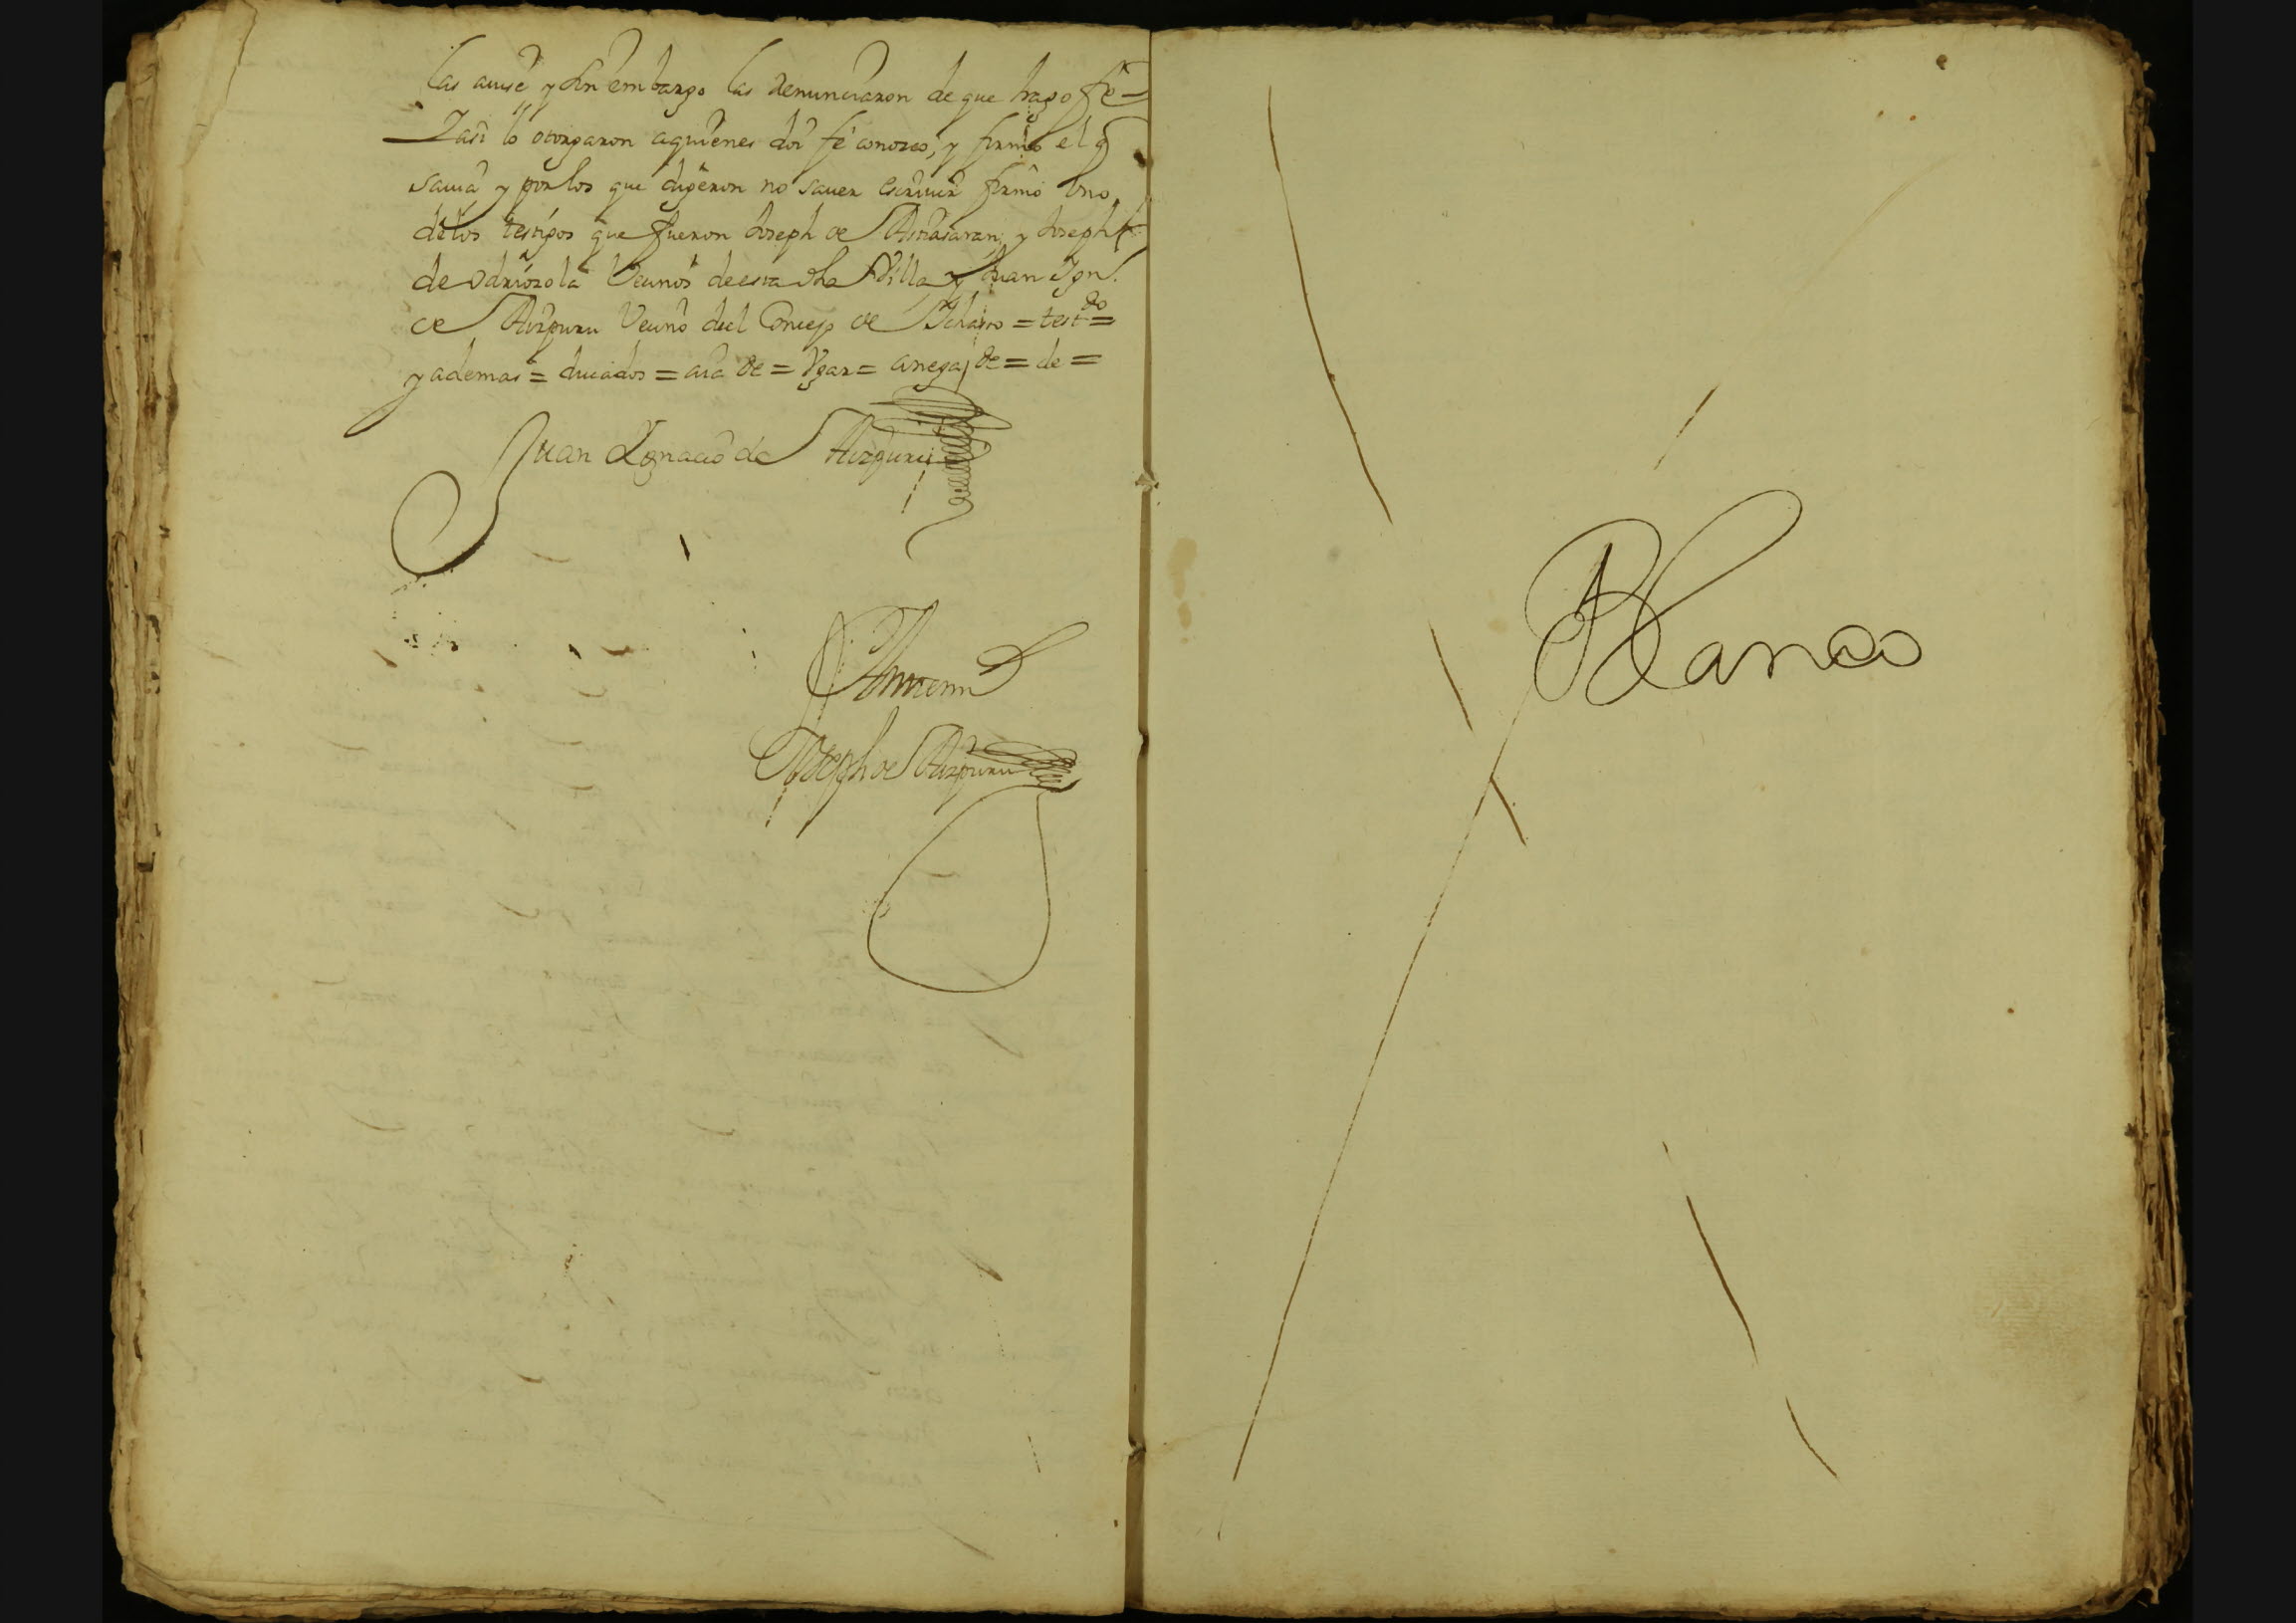 las avisé y sin embargo las renunciaron de que hago fé=
Yasi lo otorgaron aquienes doi fé conozco, y firmó el q
savia y por los que digeron no saver escrivir firmó vno
delos testigos que fueron Joseph de y Joseph
de Odriozola Vecinos deesta dha Villa y Juan Ign.º
de Aizpuru Vecino del Concejo de = test.do =
y ademas = ducados = de = = anega, de = de =
Juan Ygnacio de Aizpuru
Antemi
Joseph de Aizpuru
Blanco